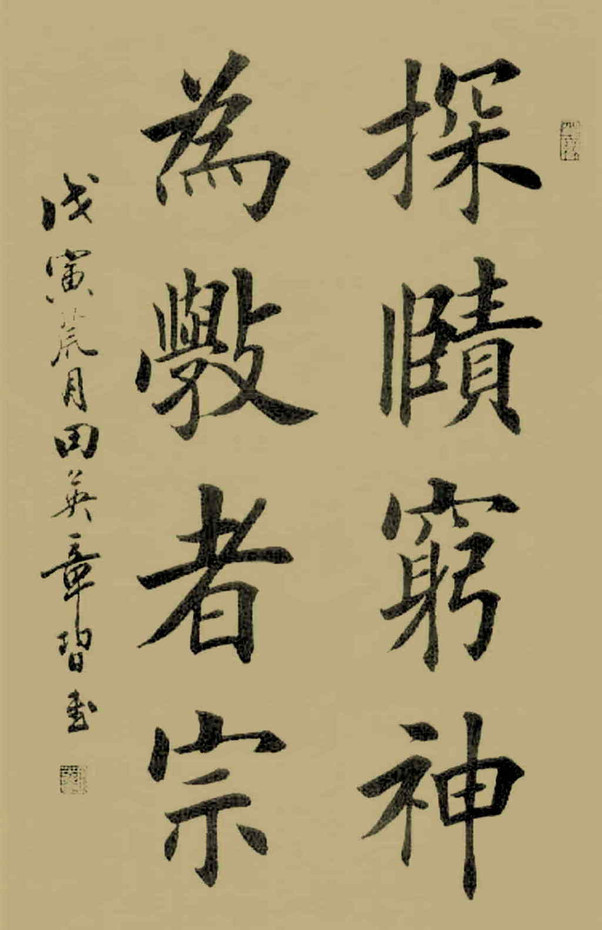 探賾窮神
為斆者宗
戊寅荒月田英章習書